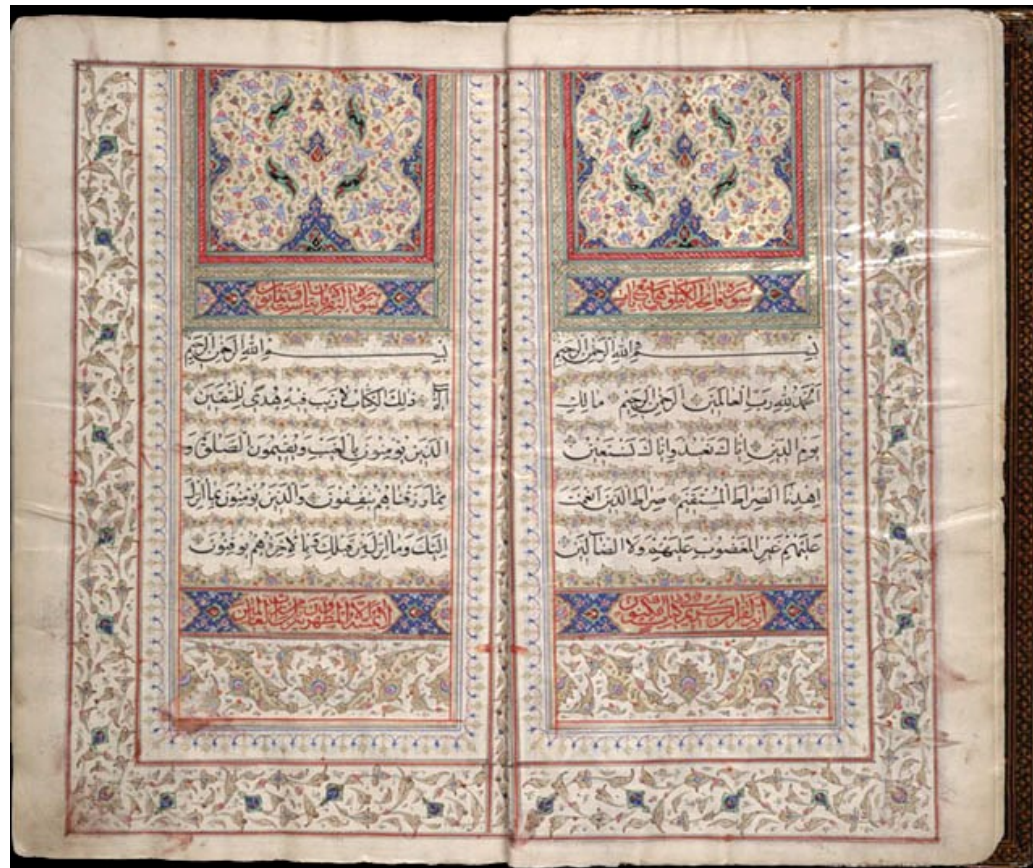 سورة فاتحة الكتاب
بِسْمِ اللهِ الرَّحْمٰنِ الرَّحِيمِ
اَلْحَمْدُ لِلّٰهِ رَبِّ الْعَالَمِينَ الرَّحْمٰنِ الرَّحِيمِ مَالِكِ
يَوْمِ الدِّينِ اِيَّاكَ نَعْبُدُ وَاِيَّاكَ نَسْتَعِينُ
اِهْدِنَا الصِّرَاطَ الْمُسْتَقِيمَ صِرَاطَ الَّذِينَ اَنْعَمْتَ
عَلَيْهِمْ غَيْرِ الْمَغْضُوبِ عَلَيْهِمْ وَلَا الضَّالِّينَ
انه لقرآن كريم في كتاب مكنون
سورة البقرة
بِسْمِ اللهِ الرَّحْمٰنِ الرَّحِيمِ
الٓمٓ ذٰلِكَ الْكِتَابُ لَا رَيْبَ فِيهِ هُدًى لِلْمُتَّقِينَ
الَّذِينَ يُؤْمِنُونَ بِالْغَيْبِ وَيُقِيمُونَ الصَّلٰوةَ وَ
مِمَّا رَزَقْنَاهُمْ يُنْفِقُونَ وَالَّذِينَ يُؤْمِنُونَ بِمَا اُنْزِلَ
اِلَيْكَ وَمَا اُنْزِلَ مِنْ قَبْلِكَ وَبِالْاٰخِرَةِ هُمْ يُوقِنُونَ
لا يمسه الا المطهرون تنزيل من رب العالمين